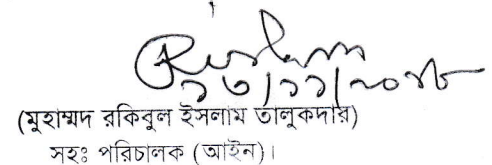 ১৩/১১/২০১৮
(মুহাম্মদ রকিবুল ইসলাম তালুকদার)
সহঃ পরিচালক (আইন)।